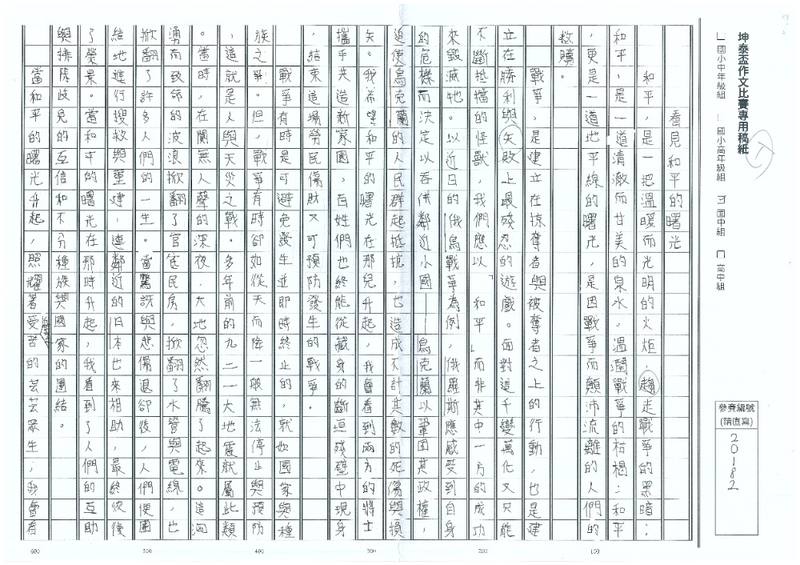 坤泰盃作文比賽專用稿紙
國小中年級組
國小高年級組
國中組
高中組
參賽編號
(請直寫)
20182
看見和平的曙光
和平，是一把溫暖而光明的火炬，趨走戰爭的黑暗；
和平，是一道清澈而甘美的泉水，溫潤戰爭的枯槁；和平
，更是一道地平線的曙光，是因戰爭而顛沛流離的人們的
救贖。
戰爭，是建立在掠奪者與被奪者之上的行動，也是建
立在勝利與失敗上最殘忍的遊戲。面對這千變萬化又只能
不斷抵擋的怪獸，我們應以「和平」而非其中一方的成功
來毀滅牠。以近日的俄烏戰爭為例，俄羅斯應感受到自身
的危機而決定以吞併鄰近小國——烏克蘭以鞏固其政權，
迫使烏克蘭的人民群起抵抗，也造成不計其數的死傷與損
失。我希望和平的曙光在那兒升起，我會看到兩方的將士
攜手共造新家園，百姓們也終能從藏身的斷垣殘壁中現身
，結束這場勞民傷財又可預防發生的戰爭。
戰爭有時是可避免發生並即時終止的，就如國家與種
族之爭。但，戰爭有時卻如從天而降一般無法停止與預防
，這就是人與天災之戰。多年前的九二一大地震就屬此類
。當時，在闃無人聲的深夜，大地忽然翻騰了起來。這洶
湧而致命的波浪掀翻了官舍民房，掀翻了水管與電線，也
掀翻了許多人們的一生。當驚訝與悲傷退卻後，人們便團
結地進行搜救與重建，連鄰近的日本也來相助，最終恢復
了榮景。當和平的曙光在那時升起，我看到了人們的互助
與撫歧見的互信和不分種族與國家的團結。
當和平的曙光升起，照耀著受苦的芸芸眾生，我會看
100
200
300
400
500
600